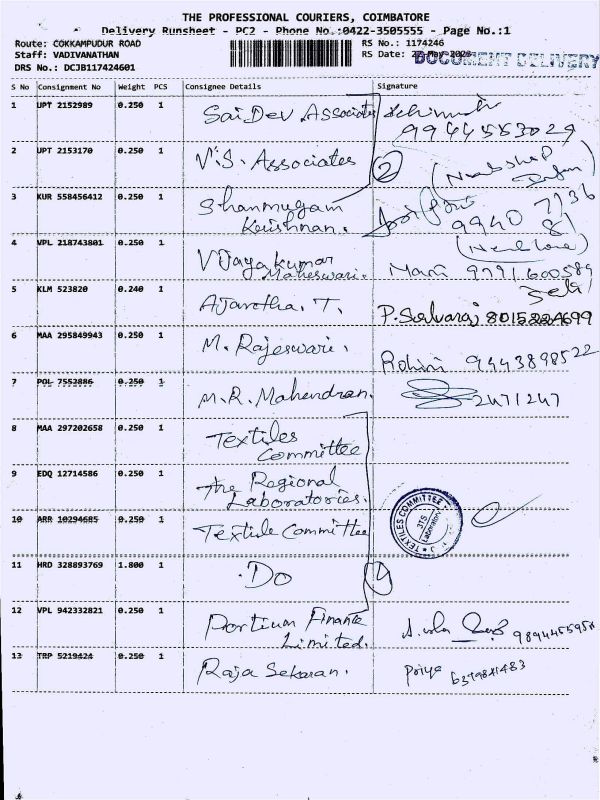 THE PROFESSIONAL COURIERS, COIMBATORE
Delivery Runsheet - PC2 - Phone No.:0422-3505555 - Page No.:1
Route: COKKAMPUDUR ROAD
RS No.: 1174246
Staff: VADIVANATHAN
RS Date: 22-May-2026
DOCUMENT DELIVERY
DRS No.: DCJB117424601
S No Consignment No Weight PCS Consignee Details Signature
1 UPT 2152989 0.250 1 Sai Dev Associates
9944553029
2 UPT 2153170 0.250 1 V.S. Associates 2
3 KUR 558456412 0.250 1 Shanmugam
Krishnan. 9940 7136
81
4 VPL 218743801 0.250 1 Vijaya kumar
Maheswari. Mani 9791600589
5 KLM 523820 0.240 1 Ajantha. T. P. Selvaraj 8015224699
6 MAA 295849943 0.250 1 M. Rajeswari. Rohini 9443898522
7 POL 7552886 0.250 1 M.R. Mahendran. 2471247
8 MAA 297202658 0.250 1 Textiles
Committee
9 EDQ 12714586 0.250 1 The Regional
Laboratories.
10 ARR 10294685 0.250 1 Textile Committee
TEXTILES COMMITTEE
11 HRD 328893769 1.800 1 Do 4
12 VPL 942332821 0.250 1 Portium Finance
Limited.
13 TRP 5219424 0.250 1 Raja Sekaran. Priya